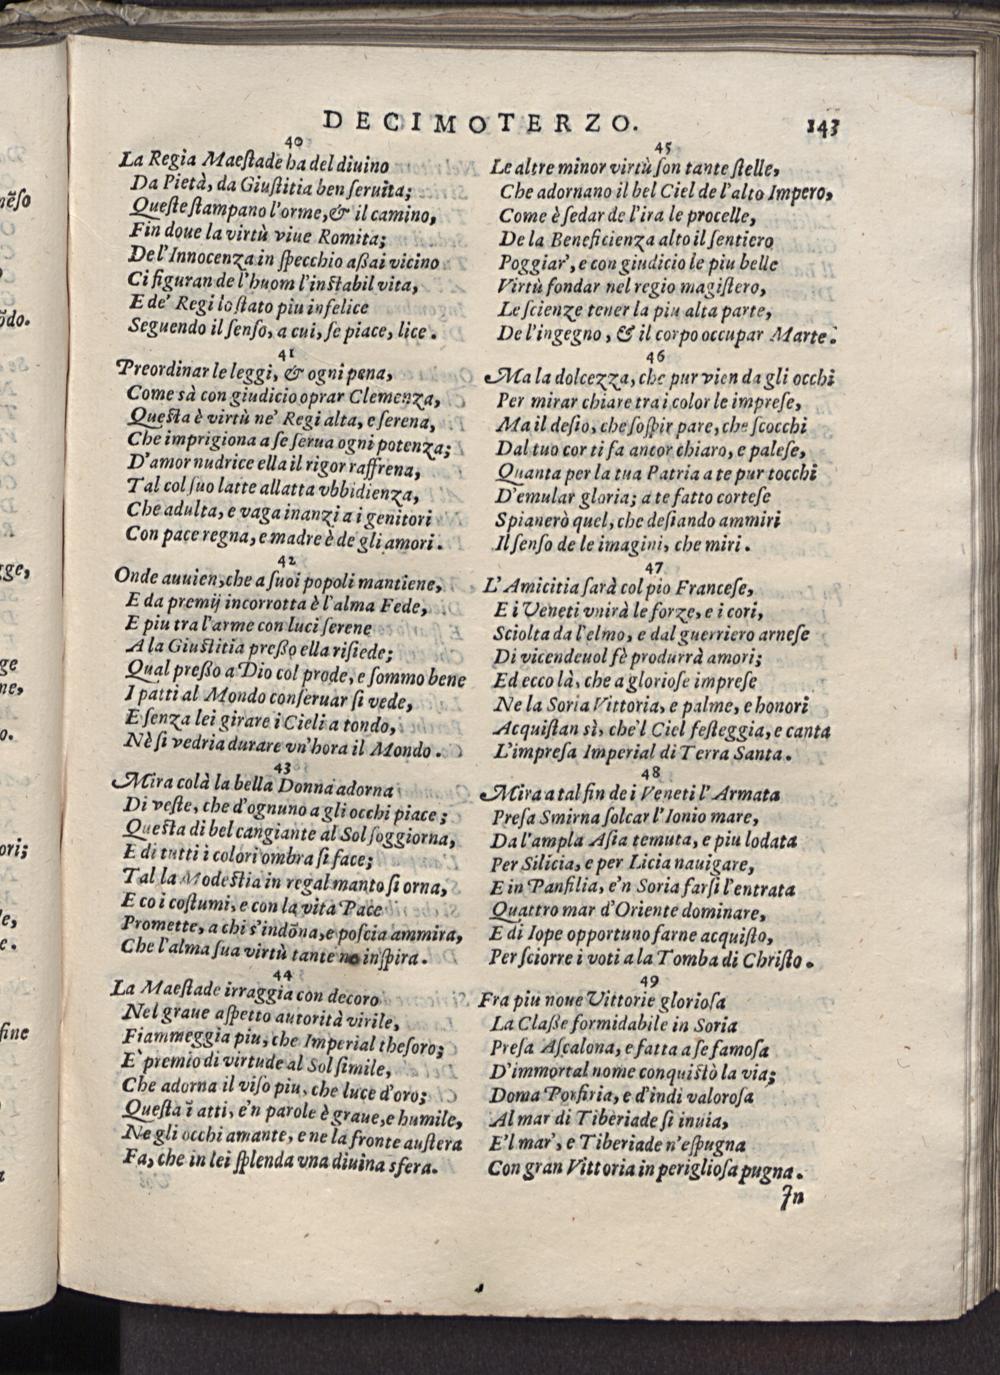 DECIMOTERZO. 143
40
La Regia Maeſtade ha del diuino
Da Pietà, da Giuſtitia ben ſeruita;
Queſte ſtampano l'orme, & il camino,
Fin doue la virtù viue Romita;
De l'Innocenza in ſpecchio aſſai vicino
Ci figuran de l'huom l'inſtabil vita,
E de' Regi lo ſtato piu infelice
Seguendo il ſenſo, a cui, ſe piace, lice.
41
Preordinar le leggi, & ogni pena,
Come sà con giudicio oprar Clemenza,
Queſta è virtù ne' Regi alta, e ſerena,
Che imprigiona a ſe ſerua ogni potenza;
D'amor nudrice ella il rigor raffrena,
Tal col ſuo latte allatta vbbidienza,
Che adulta, e vaga inanzi a i genitori
Con pace regna, e madre è de gli amori.
42
Onde auuien, che a ſuoi popoli mantiene,
E da premij incorrotta è l'alma Fede,
E piu tra l'arme con luci ſerene
A la Giuſtitia preſſo ella riſiede;
Qual preſſo a Dio col prode, e ſommo bene
I patti al Mondo conſeruar ſi vede,
E ſenza lei girare i Cieli a tondo,
Nè ſi vedria durare vn'hora il Mondo.
43
Mira colà la bella Donna adorna
Di veſte, che d'ognuno a gli occhi piace;
Queſta di bel cangiante al Sol ſoggiorna,
E di tutti i colori ombra ſi face;
Tal la Modeſtia in regal manto ſi orna,
E co i coſtumi, e con la vita Pace
Promette, a chi s'indōna, e poſcia ammira,
Che l'alma ſua virtù tante ne inſpira.
44
La Maeſtade irraggia con decoro
Nel graue aſpetto autorità virile,
Fiammeggia piu, che Imperial theſoro;
E' premio di virtude al Sol ſimile,
Che adorna il viſo piu, che luce d'oro;
Queſta ī atti, e'n parole è graue, e humile,
Ne gli occhi amante, e ne la fronte auſtera
Fa, che in lei ſplenda vna diuina sfera.
45
Le altre minor virtù ſon tante ſtelle,
Che adornano il bel Ciel de l'alto Impero,
Come è ſedar de l'ira le procelle,
De la Beneficienza alto il ſentiero
Poggiar', e con giudicio le piu belle
Virtù fondar nel regio magiſtero,
Le ſcienze tener la piu alta parte,
De l'ingegno, & il corpo occupar Marte.
46
Ma la dolcezza, che pur vien da gli occhi
Per mirar chiare tra i color le impreſe,
Ma il deſio, che ſoſpir pare, che ſcocchi
Dal tuo cor ti fa ancor chiaro, e paleſe,
Quanta per la tua Patria a te pur tocchi
D'emular gloria; a te fatto corteſe
Spianerò quel, che deſiando ammiri
Il ſenſo de le imagini, che miri.
47
L'Amicitia ſarà col pio Franceſe,
E i Veneti vnirà le forze, e i cori,
Sciolta da l'elmo, e dal guerriero arneſe
Di vicendeuol fè produrrà amori;
Ed ecco là, che a glorioſe impreſe
Ne la Soria Vittoria, e palme, e honori
Acquiſtan sì, che'l Ciel feſteggia, e canta
L'impreſa Imperial di Terra Santa.
48
Mira a tal fin de i Veneti l'Armata
Preſa Smirna ſolcar l'Ionio mare,
Da l'ampla Aſia temuta, e piu lodata
Per Silicia, e per Licia nauigare,
E in Panfilia, e'n Soria farſi l'entrata
Quattro mar d'Oriente dominare,
E di Iope opportuno farne acquiſto,
Per ſciorre i voti a la Tomba di Chriſto.
49
Fra piu noue Vittorie glorioſa
La Claſſe formidabile in Soria
Preſa Aſcalona, e fatta a ſe famoſa
D'immortal nome conquiſtò la via;
Doma Porfiria, e d'indi valoroſa
Al mar di Tiberiade ſi inuia,
E'l mar', e Tiberiade n'eſpugna
Con gran Vittoria in periglioſa pugna.
In